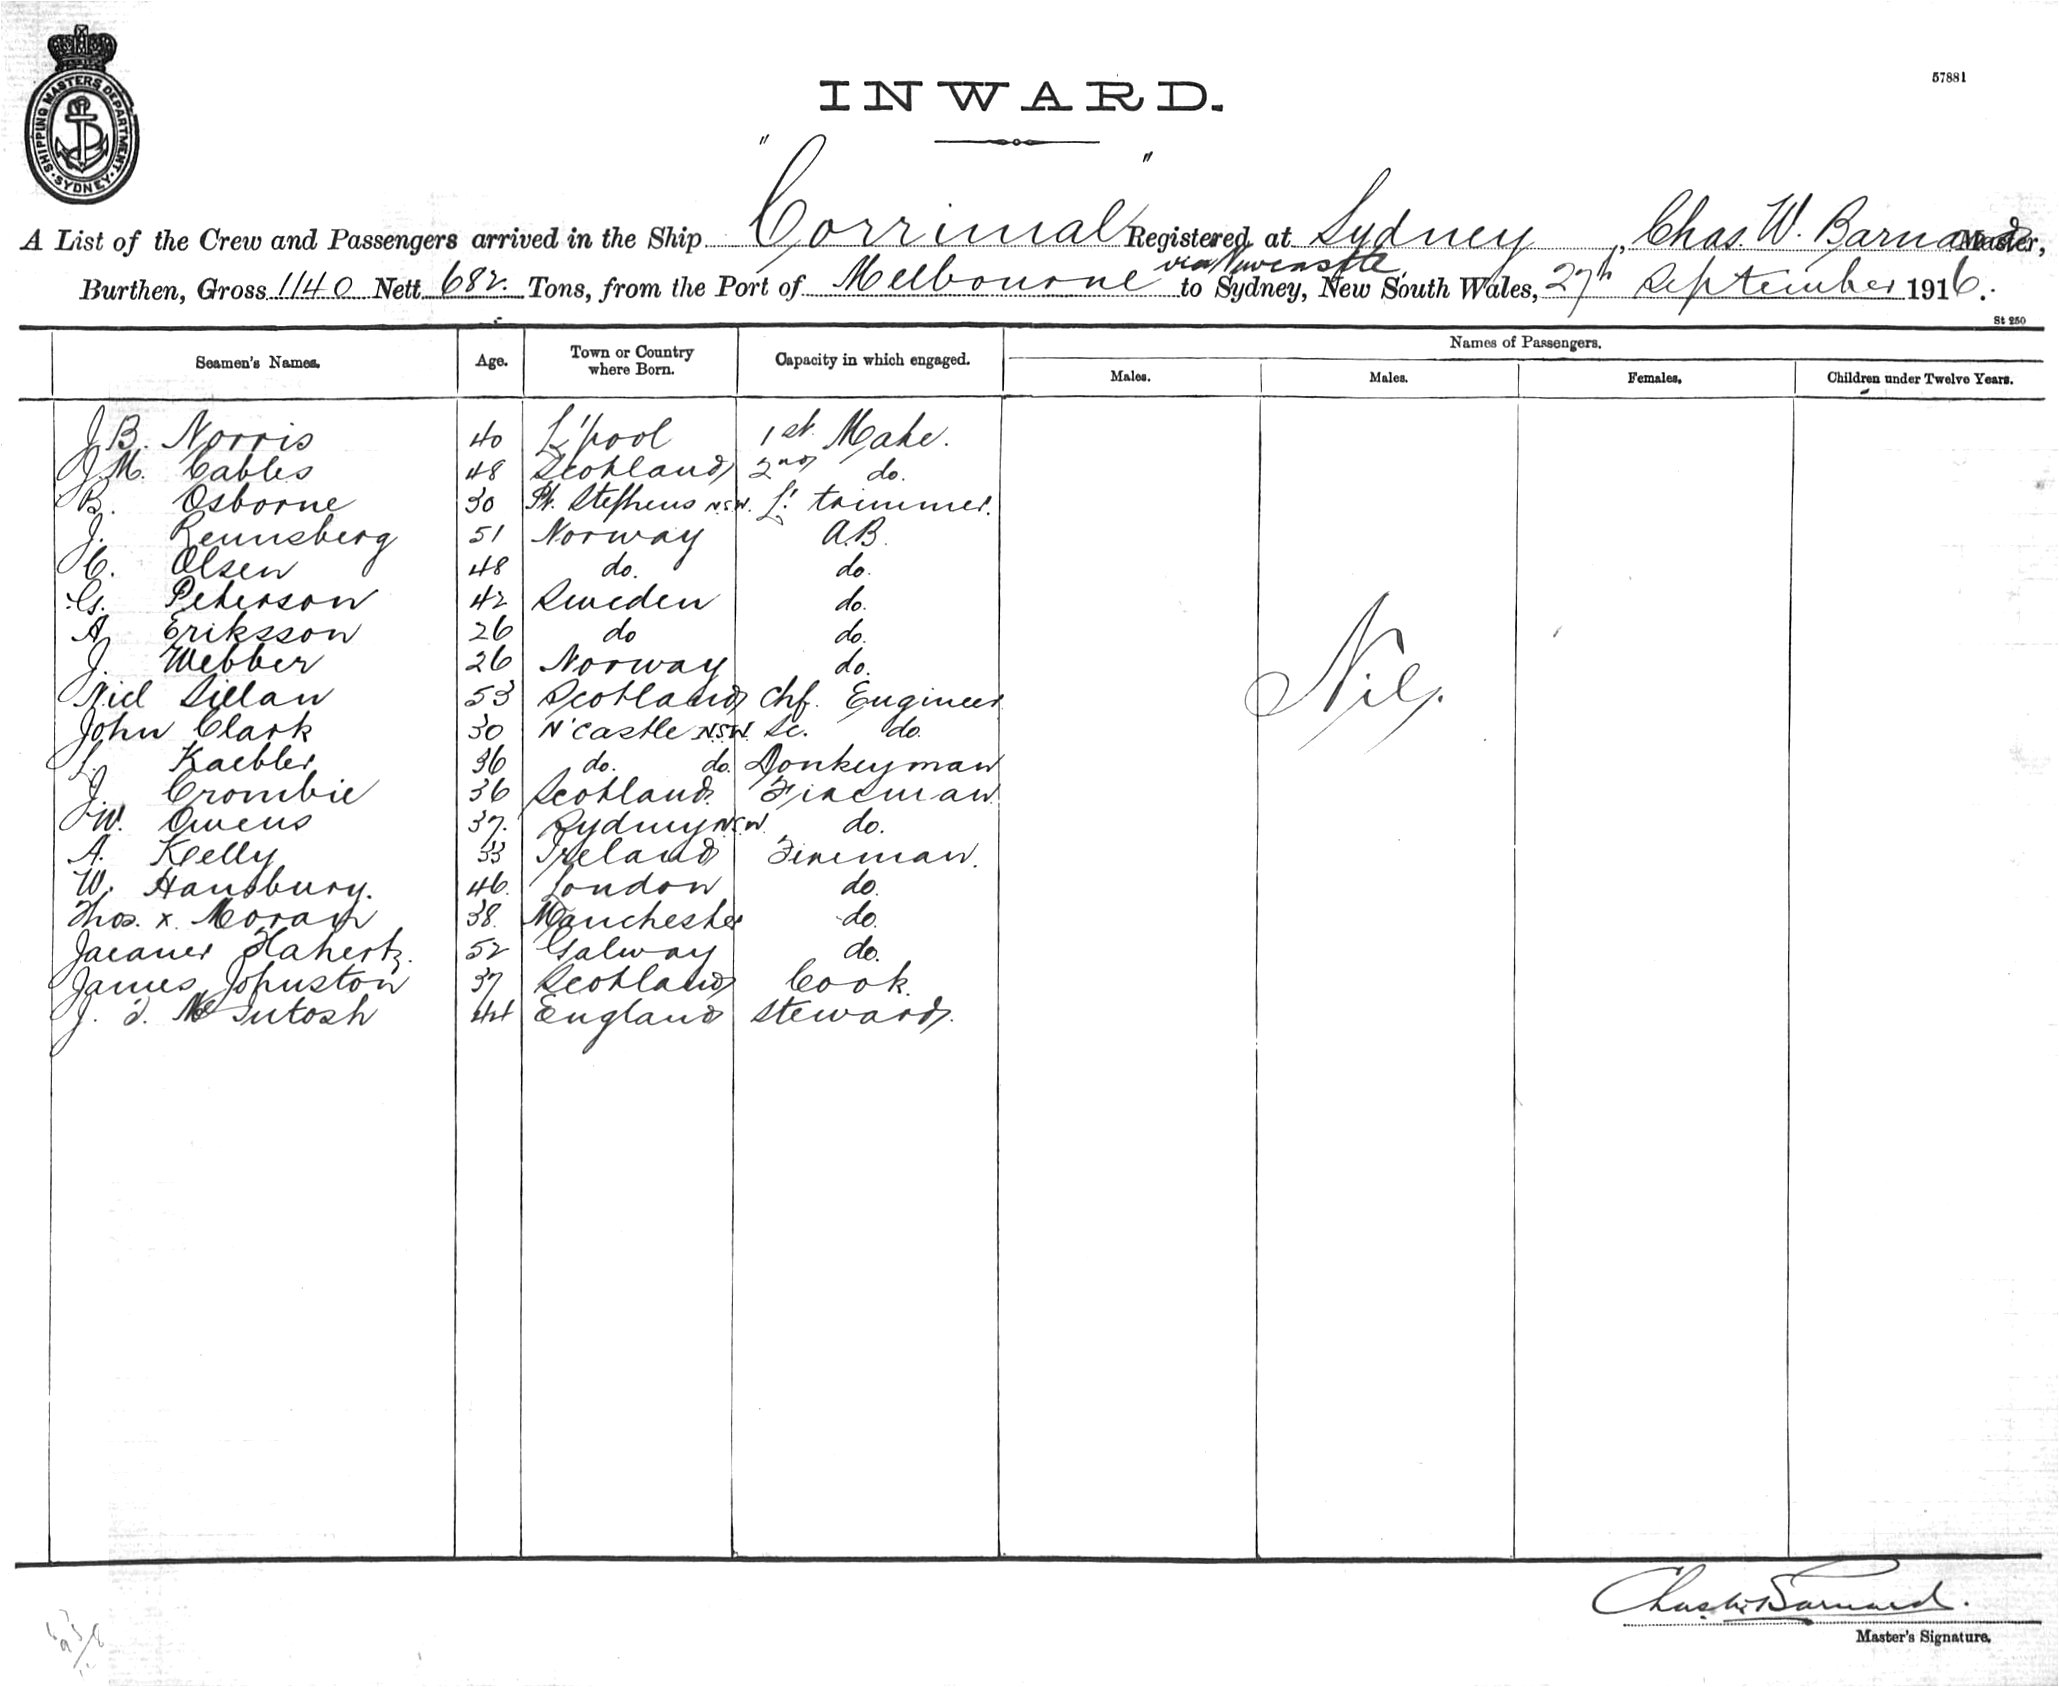 57881
SHIPPING MASTERS DEPARTMENT. SYDNEY
INWARD.
A List of the Crew and Passengers arrived in the Ship "Corrimal" Registered at Sydney, Chas. W. Barnard Master,
via Newcastle
Burthen, Gross 1140 Nett 682. Tons, from the Port of Melbourne to Sydney, New South Wales, 27th September 1916.
St 250
Seamen's Names. Age. Town or Country where Born. Capacity in which engaged. Names of Passengers.
Males. Males. Females. Children under Twelve Years.
J. B. Norris 40 L'pool 1st. Mate.
J. M. Cables 48 Scotland 2nd do.
B. Osborne 30 Pt. Stephens N.S.W. L. trimmer.
J. Rennsberg 51 Norway A.B.
C. Olsen 48 do. do.
G. Peterson 42 Sweden do.
A. Eriksson 26 do do.
J. Webber 26 Norway do.
Niel Sillan 53 Scotland Chf. Engineer
John Clark 30 N'castle N.S.W. Sc. do.
L. Kaebler 36 do. do. Donkeyman
J. Crombie 36 Scotland Fireman
W. Owens 37. Sydney N.S.W. do.
A. Kelly 33 Ireland Fireman.
W. Hansbury. 46. London do.
Thos. x. Moran 38. Manchester do.
Flaherty. 52 Galway do.
James Johnston 37 Scotland Cook.
J. McIntosh 44 England Steward.
Nil.
Chas. W. Barnard.
Master's Signature.